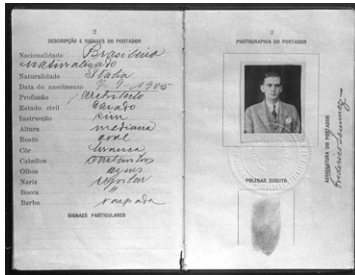 2
DESCRIPÇÃO E SIGNAES DO PORTADOR
Nacionalidade Brasileira
naturalizado
Naturalidade Italia
Data do nascimento 7-9-1905
Profissão Architecto
Estado civil Casado
Instrucção sim
Altura mediana
Rosto oval
Côr branca
Cabellos castanhos
Olhos azues
Nariz regular
Bocca "
Barba raspada
SIGNAES PARTICULARES
3
PHOTOGRAPHIA DO PORTADOR
POLEGAR DIREITO
ASSIGNATURA DO PORTADOR